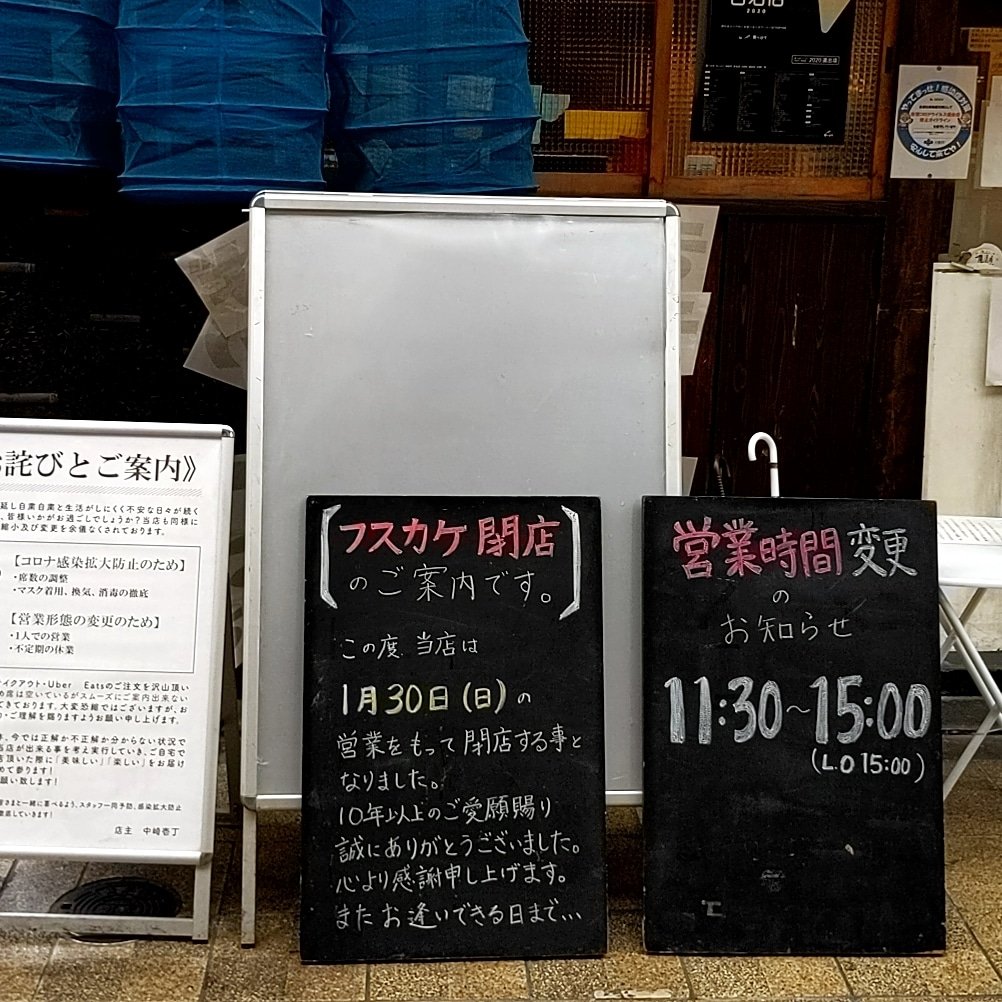 お詫びとご案内》
延し自粛自粛と生活がしにくく不安な日々が続く
、皆様いかがお過ごしでしょうか？当店も同様に
縮小及び変更を余儀なくされております。
【コロナ感染拡大防止のため】
・席数の調整
・マスク着用、換気、消毒の徹底
【営業形態の変更のため】
・1人での営業
・不定期の休業
イクアウト・Uber Eatsのご注文を沢山頂い
席は空いているがスムーズにご案内出来ない
てきております。大変恐縮ではございますが、お
・ご理解を賜りますようお願い申し上げます。
、今では正解か不正解か分からない状況で
当店が出来る事を考え実行していき、ご自宅で
店頂いた際に「美味しい」「楽しい」をお届け
めて参ります！
願い致します！
皆さまと一緒に喜べるよう、スタッフ一同予防、感染拡大防止
徹底していきます！
店主 中崎壱丁
[フスカケ 閉店
のご案内です。]
この度 当店は
1月30日(日)の
営業をもって閉店する事と
なりました。
10年以上のご愛願賜り
誠にありがとうございました。
心より感謝申し上げます。
また お逢いできる日まで…
営業時間 変更
の
お知らせ
11:30～15:00
(L.O 15:00)
2020